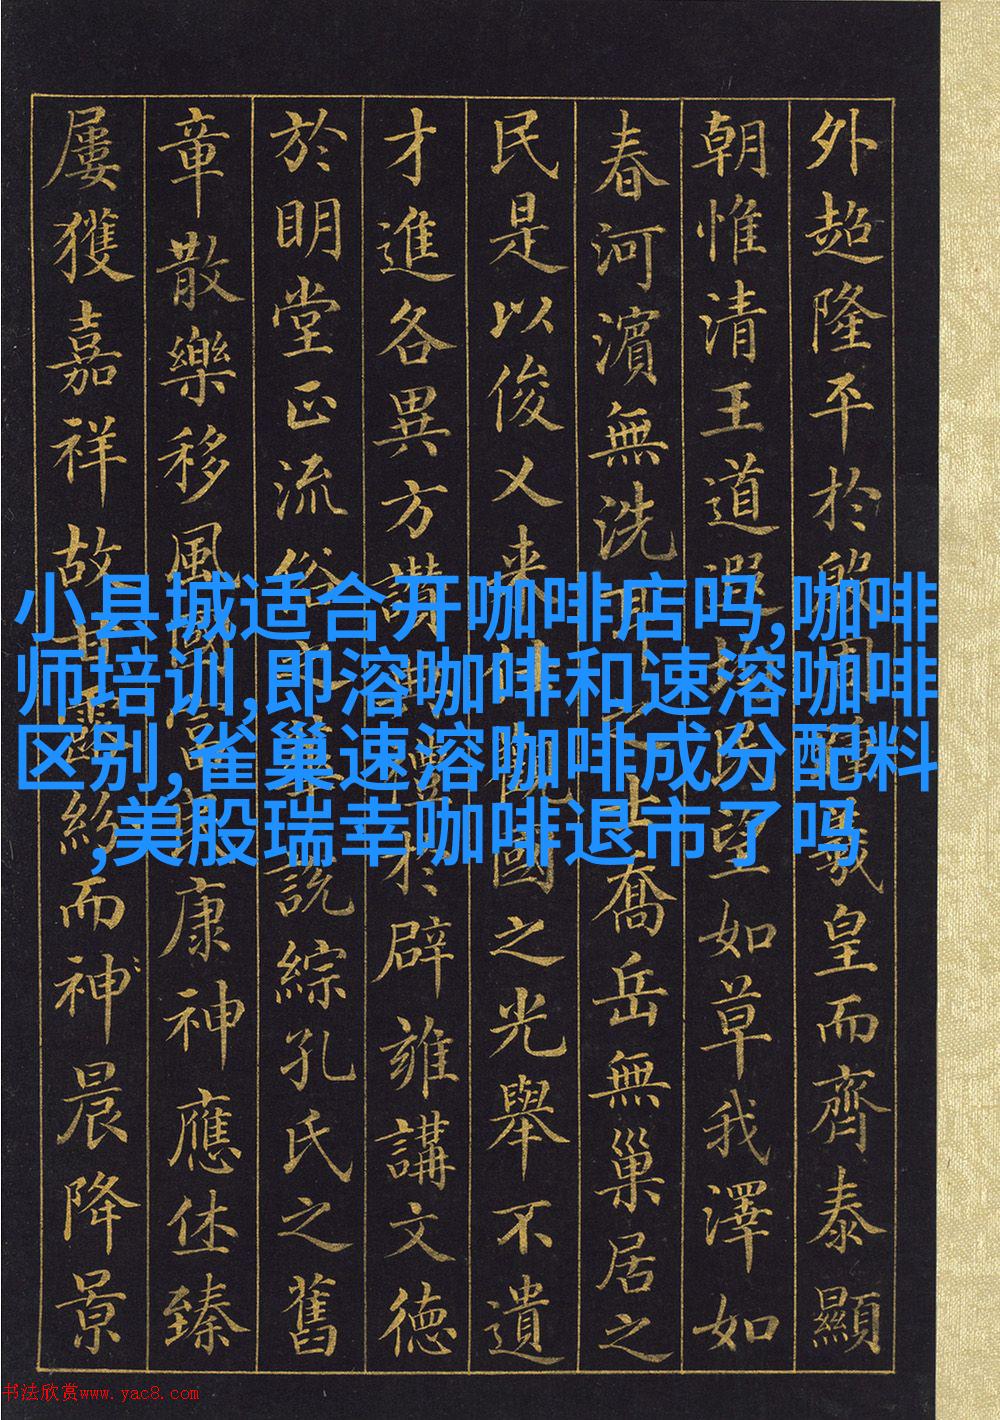 外超隆平於殷周羲皇而齊泰顯
朝惟清王道遐均民望如草我澤如
春河濵無洗耳之士喬岳無巢居之
民是以俊乂来仕觀國之光舉不遺
才進各異方讃典禮於辟雍講文德
於明堂正流俗之華說綜孔氏之舊
章散樂移風國富民康神應休臻
屢獲嘉祥故甘靈紛而神晨降景
小县城适合开咖啡店吗,咖啡
师培训,即溶咖啡和速溶咖啡
区别,雀巢速溶咖啡成分配料
,美股瑞幸咖啡退市了吗
书法欣赏www.yac8.com